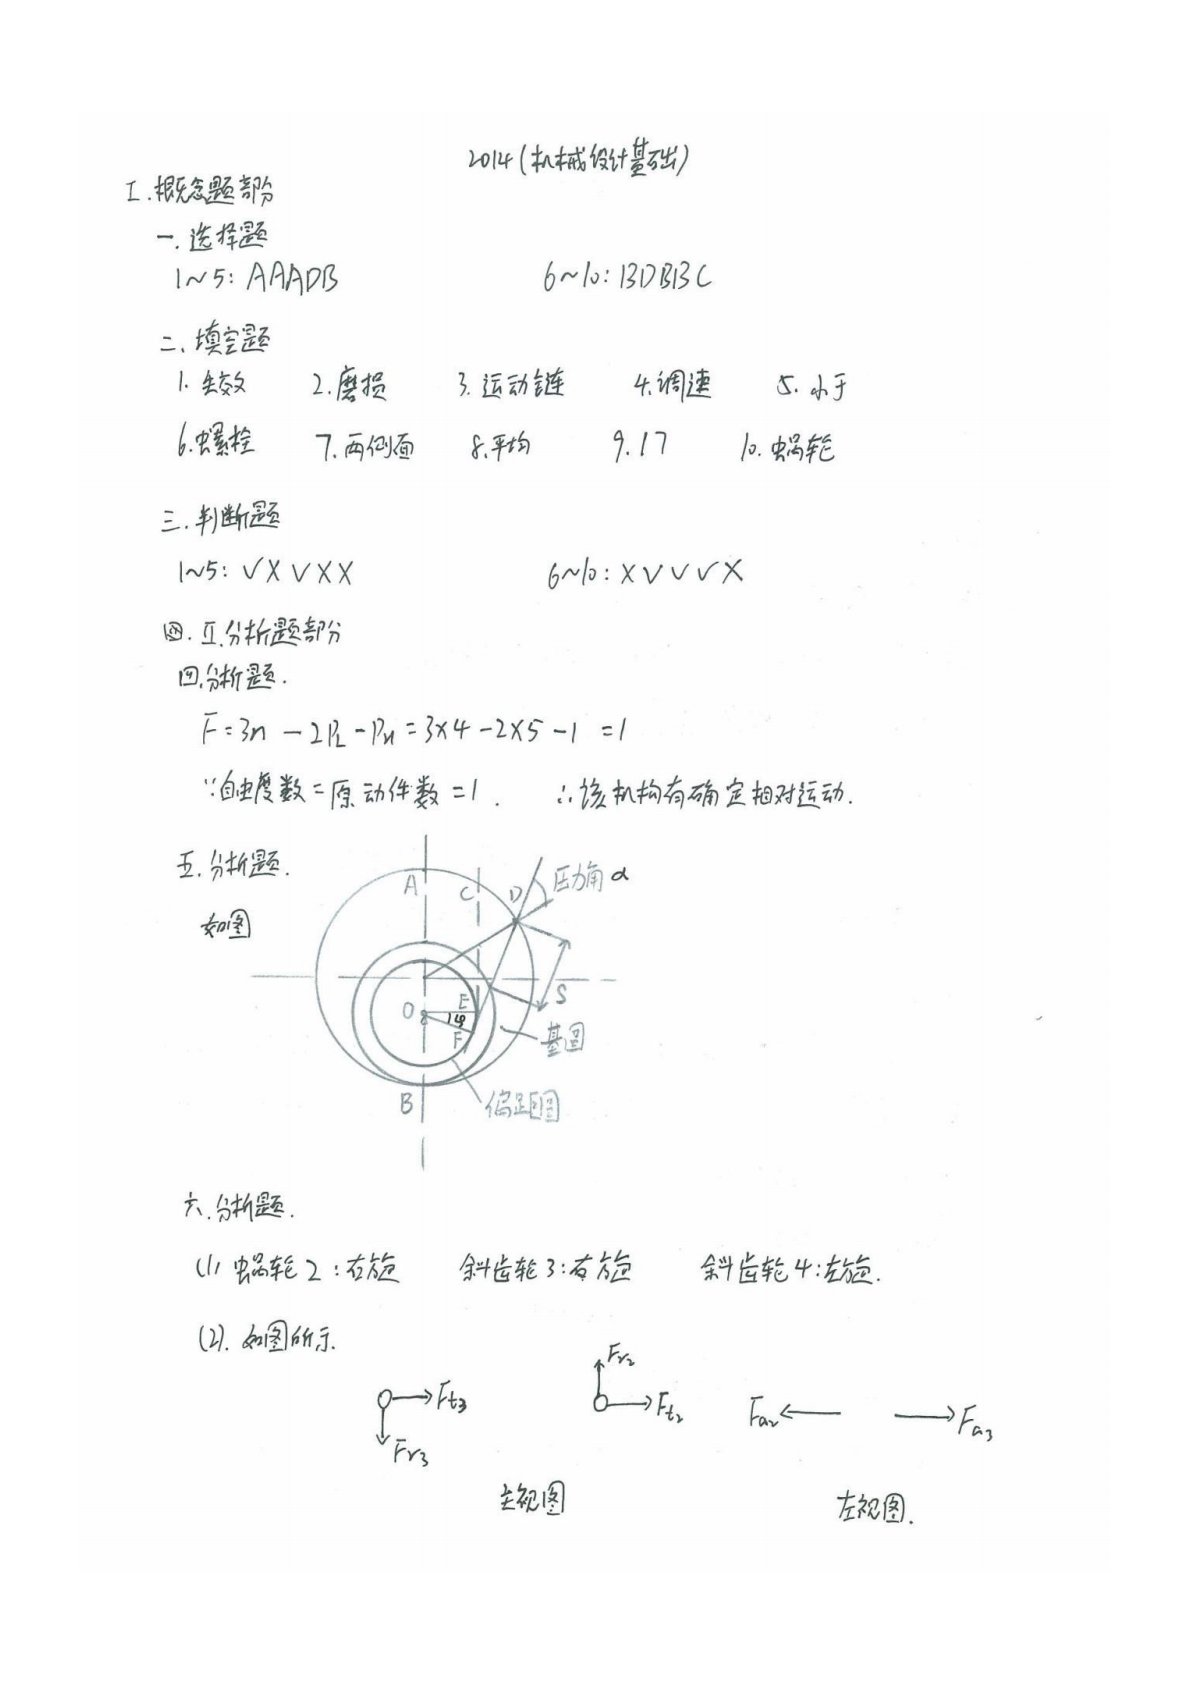 2014(机械设计基础)
I.概念题部分
一.选择题
1~5: AAADB 6~10: BDBBC
二、填空题
1.失效 2.磨损 3.运动链 4.调速 5.小于
6.螺栓 7.两侧面 8.平均 9.17 10.蜗轮
三.判断题
1~5: √×√×× 6~10: ×√√√×
四.II.分析题部分
四.分析题.
F=3n-2PL-PH=3×4-2×5-1=1
∵自由度数=原动件数=1. ∴该机构有确定相对运动.
五.分析题.
如图
A C D 压力角α
S
O E φ F
基圆
B 偏距圆
六.分析题.
(1) 蜗轮2:右旋 斜齿轮3:右旋 斜齿轮4:左旋.
(2). 如图所示.
Fr2
Ft3 Ft2 Fa2 Fa3
Fr3
主视图 左视图.